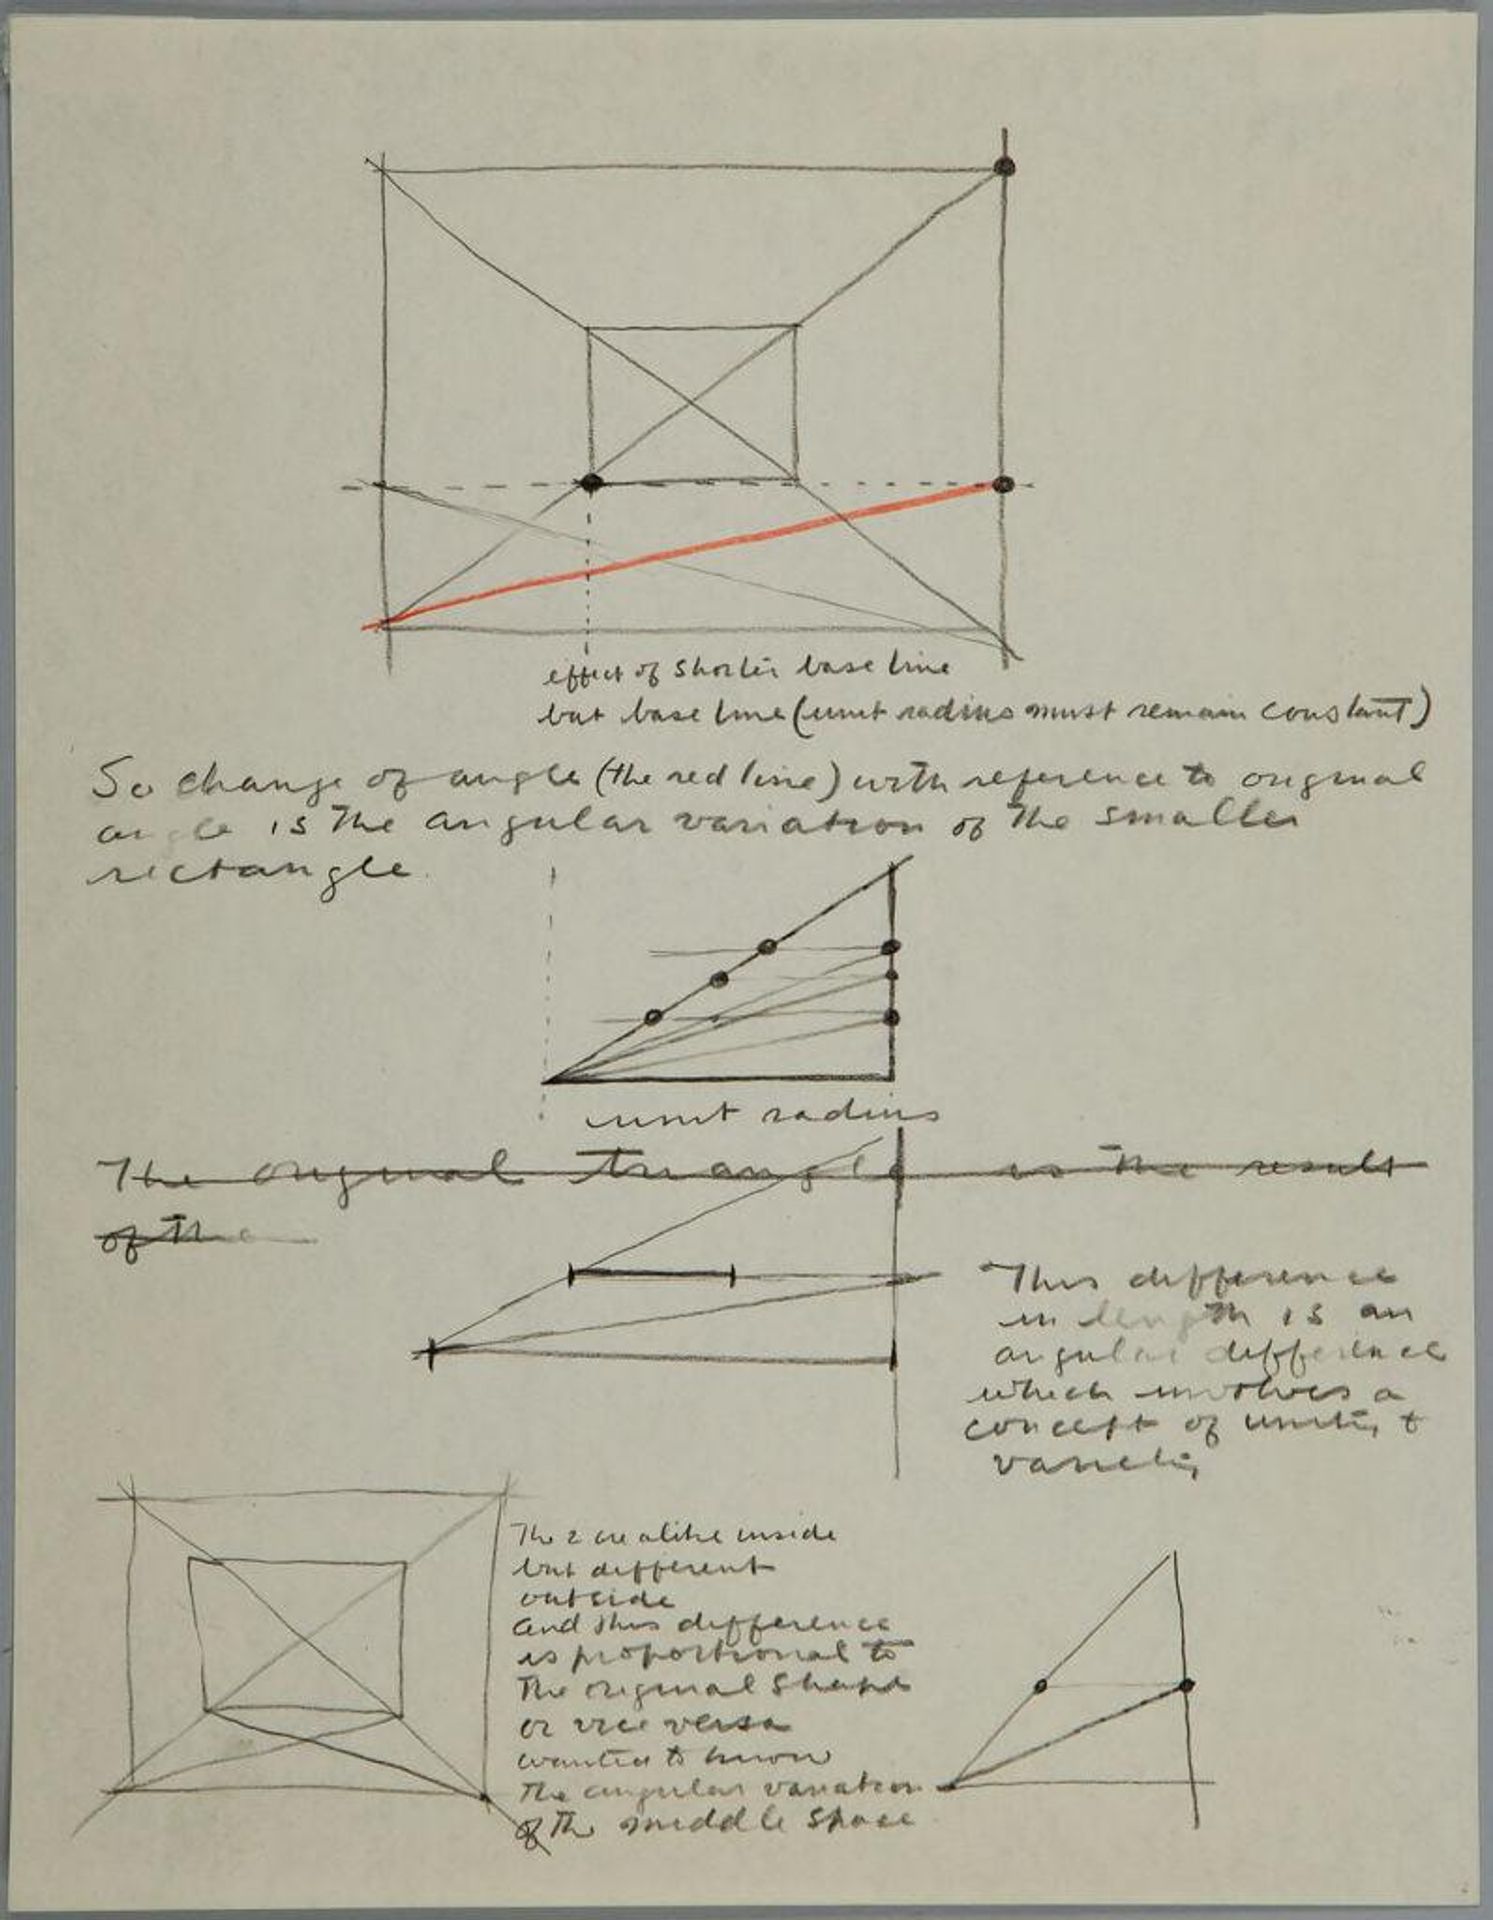 effect of shorter base line
but base line (unit radius must remain constant)
So change of angle (the red line) with reference to original
angle is the angular variation of the smaller
rectangle.
unit radius
The original triangle is the result
of the
This difference
in length is an
angular difference
which involves a
concept of unity &
variety
The 2 are alike inside
but different
outside
and this difference
is proportional to
the original shape
or vice versa
wanted to know
the angular variation
of the middle space